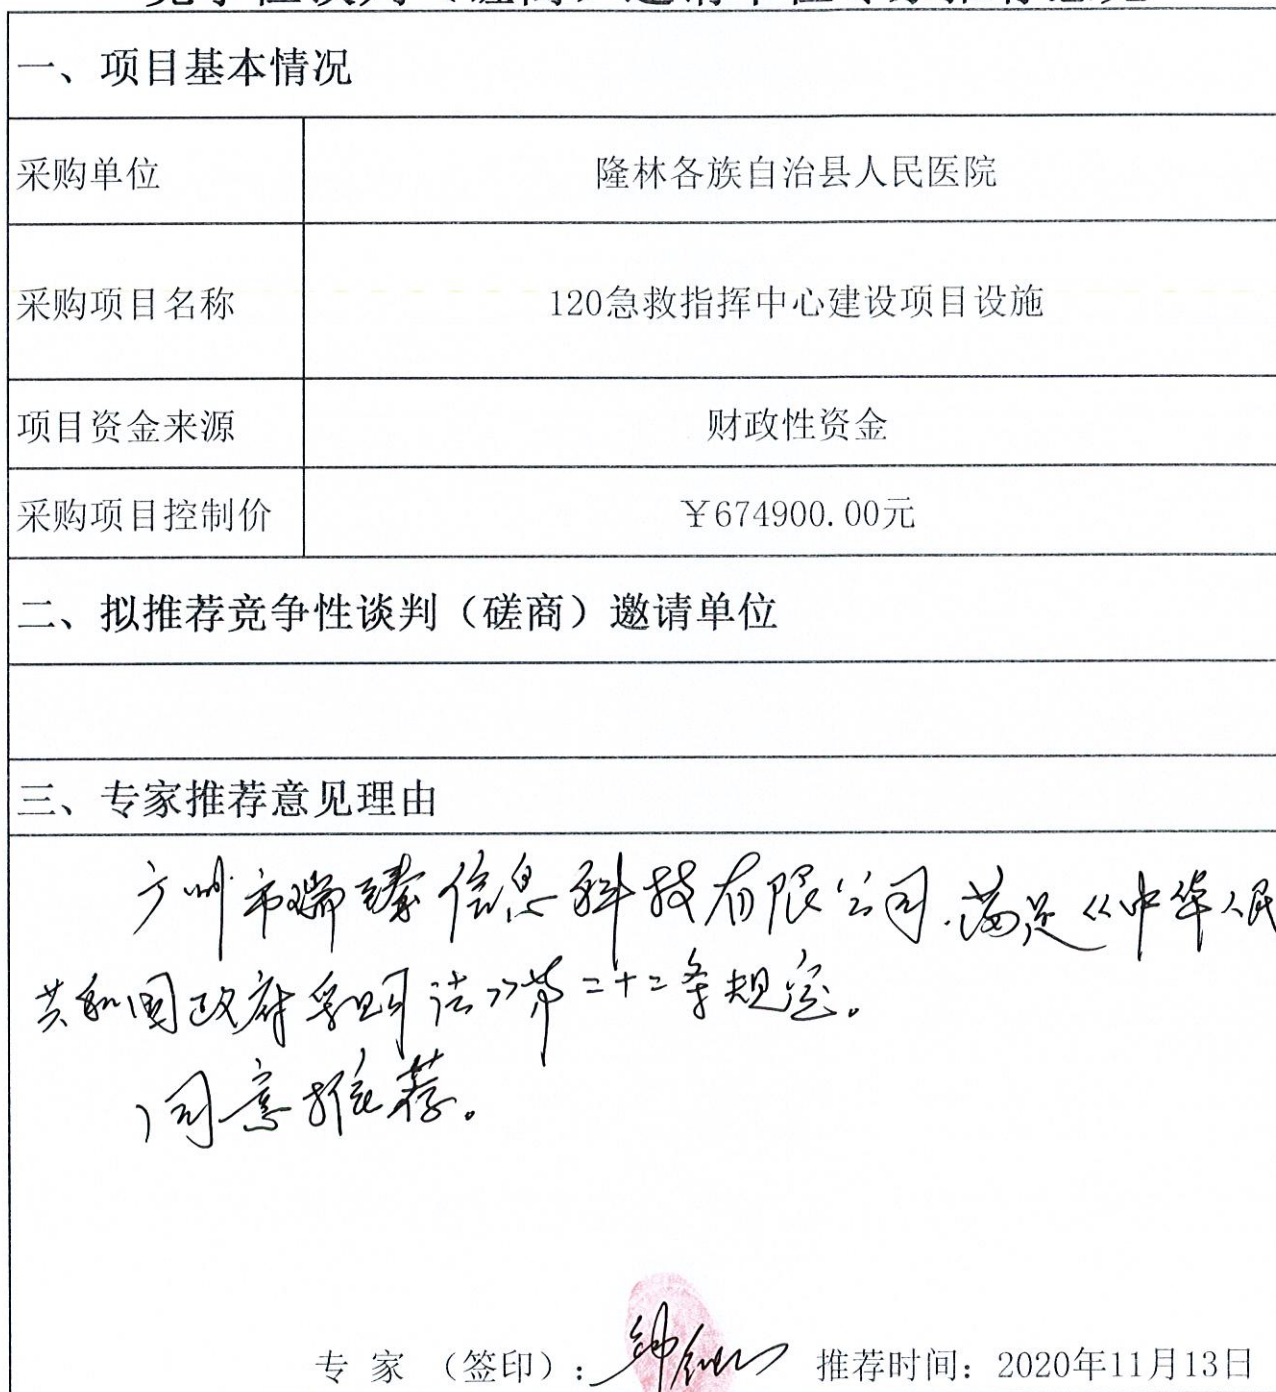 竞争性谈判（磋商）邀请单位专家推荐意见
一、项目基本情况
采购单位
隆林各族自治县人民医院
采购项目名称
120急救指挥中心建设项目设施
项目资金来源
财政性资金
采购项目控制价
￥674900.00元
二、拟推荐竞争性谈判（磋商）邀请单位
三、专家推荐意见理由
广州市瑞臻信息科技有限公司.满足《中华人民
共和国政府采购法》第二十二条规定。
同意推荐。
专 家 （签印）：钟 推荐时间：2020年11月13日